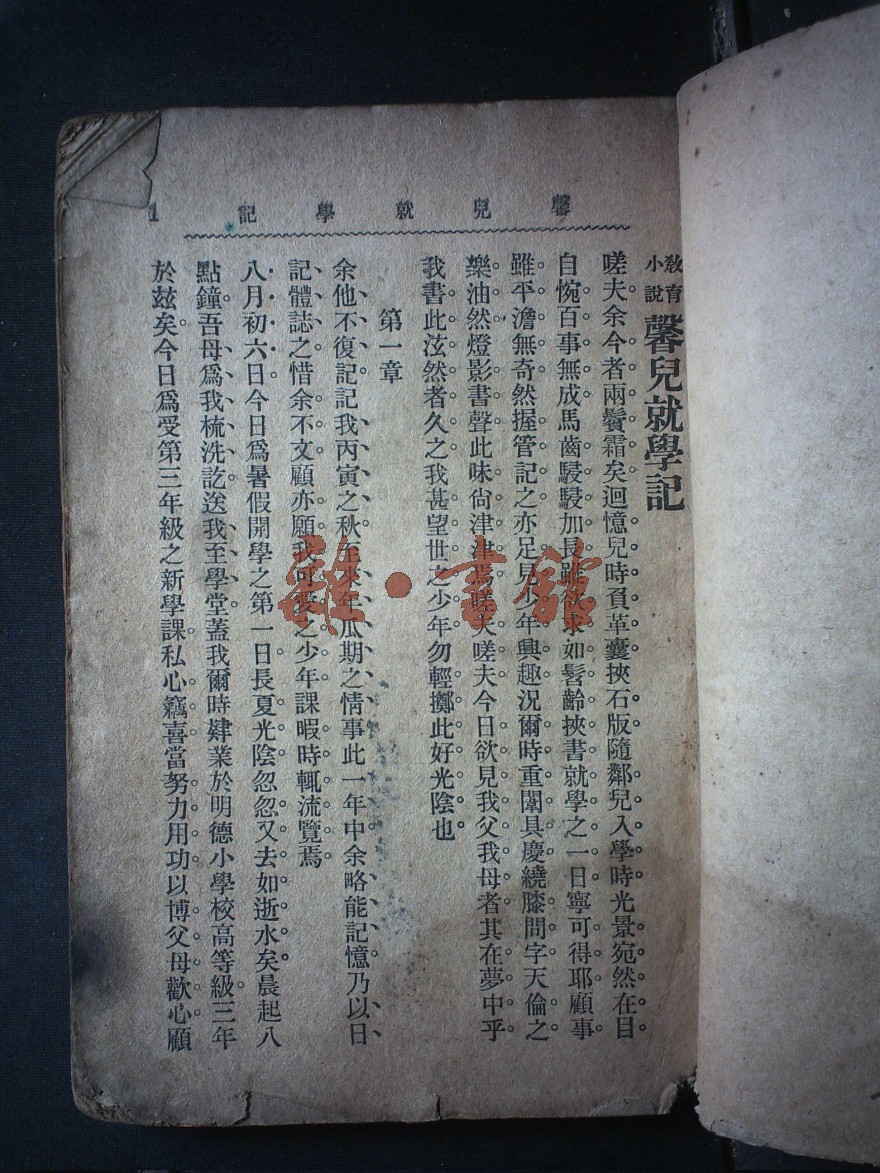 馨兒就學記 1
教育小說 馨兒就學記
嗟夫余今者兩鬢霜矣迴憶兒時負革囊挾石版隨鄰兒入學時光景宛然在目
自惋百事無成馬齒駸駸加長雖欲求如髫齡挾書就學之一日寧可得耶顧事
雖平澹無奇然握管記之亦足見少年興趣況爾時重闈具慶繞膝問字天倫之
樂油然燈影書聲此味尙津津焉嗟夫嗟夫今日欲見我父我母者其在夢中乎
我書此泫然者久之我甚望世之少年勿輕擲此好光陰也
第一章
余他不復記記我丙寅之秋至來年瓜期之情事此一年中余略能記憶乃以日
記體誌之惜余不文顧亦願我可愛之少年課暇時輒流覽焉
八月初六日今日爲暑假開學之第一日長夏光陰忽忽又去如逝水矣晨起八
點鐘吾母爲我梳洗訖送我至學堂蓋我爾時肄業於明德小學校高等級三年
於茲矣今日爲受第三年級之新學課私心竊喜當努力用功以博父母歡心顧
雜·書館